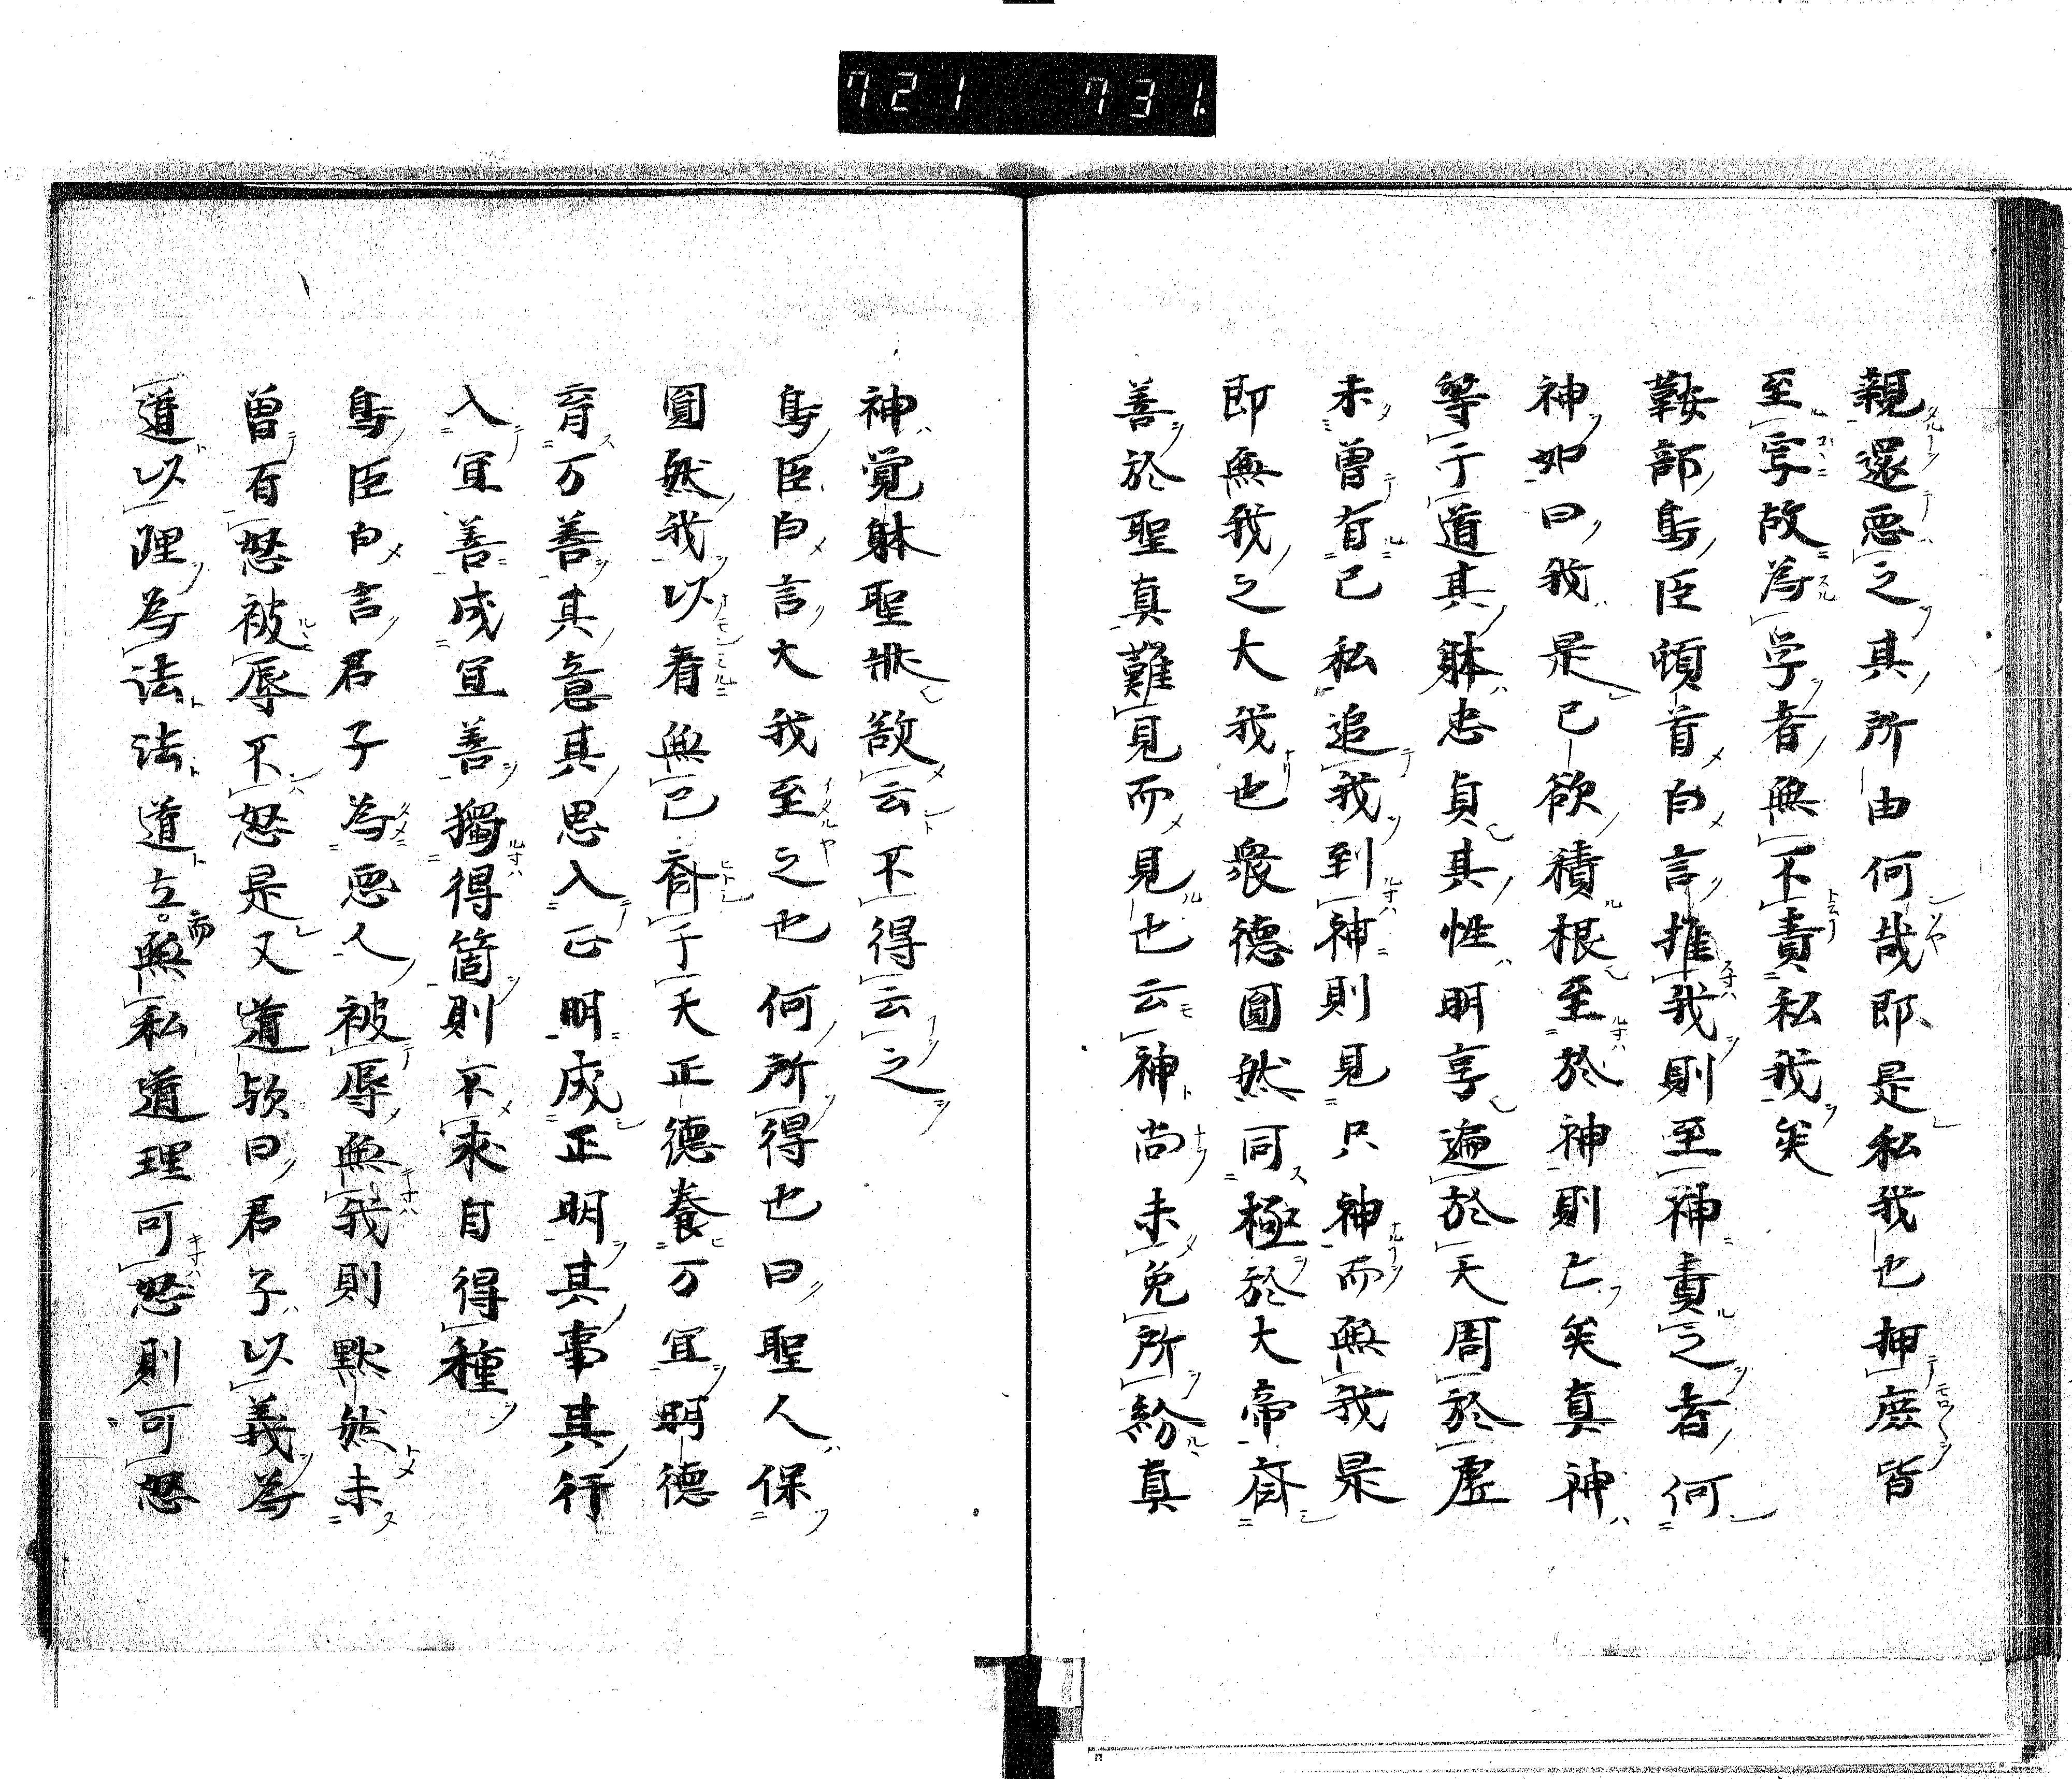 721 731
親還惡之其所由何哉即是私我也押庶皆
至寧故為学者無不責私我矣
鞍部鳥臣頓首白言推我則至神責之者何
神如曰我是已欲積根至於神則亡矣真神
等于道其躰忠貞其性明享遍於天周於虚
未曾有已私追我到神則見只神而無我是
即無我之大我也衆德圓然同極於大帝齊
善於聖真難見而見也云神尚未免所紛真
神覚躰聖非欲云不得云之
鳥臣白言大我至之也何所得也曰聖人保
圓然我以看無已齊于天正德養万宜明德
育万善其意其思入正明成正明其事其行
入宜善成宜善獨得箇則不求自得種
鳥臣白言君子為惡人被辱無我則默然未
曾有怒被辱不怒是又道欤曰君子以義為
道以理為法法道立而無私道理可怒則可怒